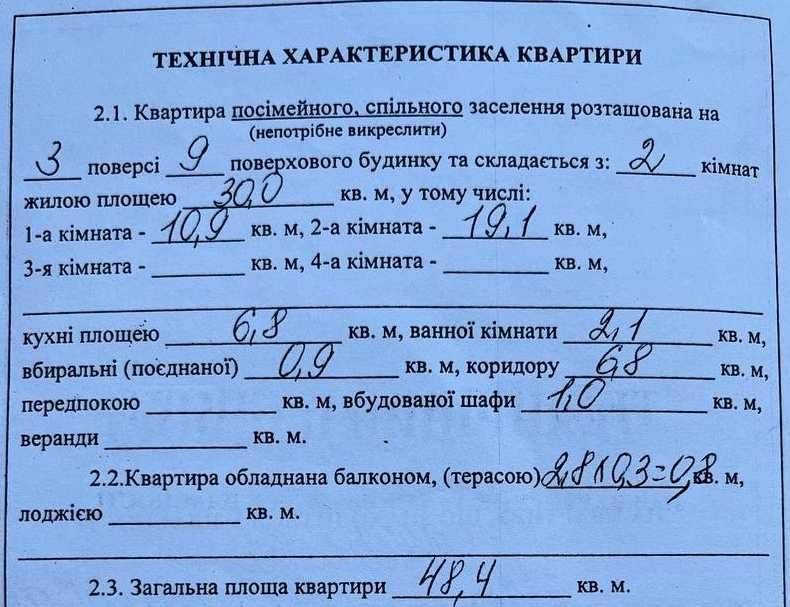 ТЕХНІЧНА ХАРАКТЕРИСТИКА КВАРТИРИ
2.1. Квартира посімейного, спільного заселення розташована на
(непотрібне викреслити)
3 поверсі 9 поверхового будинку та складається з: 2 кімнат
жилою площею 30,0 кв. м, у тому числі:
1-а кімната - 10,9 кв. м, 2-а кімната - 19,1 кв. м,
3-я кімната - ________ кв. м, 4-а кімната - ________ кв. м,
кухні площею 6,8 кв. м, ванної кімнати 2,1 кв. м,
вбиральні (поєднаної) 0,9 кв. м, коридору 6,8 кв. м,
передпокою ________ кв. м, вбудованої шафи 1,0 кв. м,
веранди ________ кв. м.
2.2.Квартира обладнана балконом, (терасою) 2,8х0,3=0,8 кв. м,
лоджією ________ кв. м.
2.3. Загальна площа квартири 48,4 кв. м.